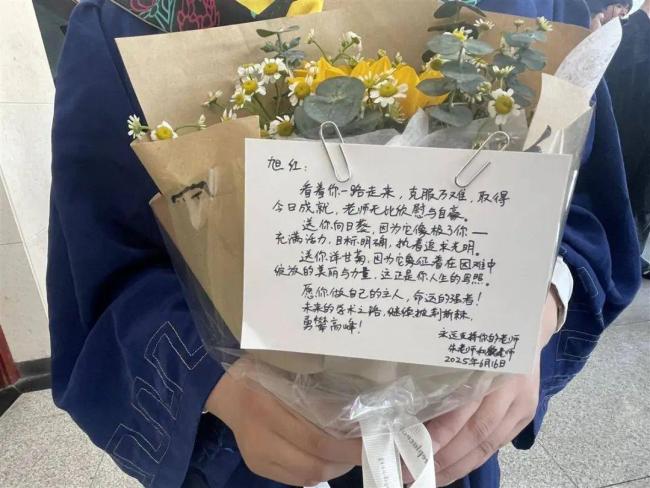 旭红：
看着你一路走来，克服万难，取得
今日成就，老师无比欣慰与自豪。
送你向日葵，因为它像极了你——
充满活力，目标明确，执着追求光明。
送你洋甘菊，因为它象征着在困难中
绽放的美丽与力量，这正是你人生的写照。
愿你做自己的主人，命运的强者！
未来的学术之路，继续披荆斩棘，
勇攀高峰！
永远支持你的老师
朱老师和老师
2025年6月16日